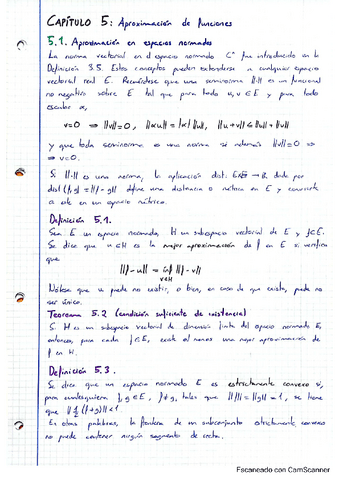 CAPÍTULO 5: Aproximación de funciones
5.1. Aproximación en espacios normados
La norma vectorial en el espacio normado Cⁿ fue introducida en la
Definición 3.5. Estos conceptos pueden extenderse a cualquier espacio
vectorial real E. Recuérdese que una seminorma ||·|| es un funcional
no negativo sobre E tal que para todo u, v ∈ E y para todo
escalar α,
v=0 ⇒ ||v||=0, ||αu|| = |α| ||u||, ||u+v|| ≤ ||u|| + ||v||
y que toda seminorma es una norma si además ||v||=0 ⇒
⇒ v=0.
Si ||·|| es una norma, la aplicación dist: E×E → R, dada por
dist(f,g) = ||f-g|| define una distancia o métrica en E y convierte
a este en un espacio métrico.
Definición 5.1.
Sea E un espacio normado, H un subespacio vectorial de E y f∈E.
Se dice que u∈H es la mejor aproximación de f en H si verifica
que
||f-u|| = inf ||f-v||
v∈H
Nótese que u puede no existir, o bien, en caso de que exista, puede no
ser único.
Teorema 5.2 (condición suficiente de existencia)
Si H es un subespacio vectorial de dimensión finita del espacio normado E,
entonces, para cada f∈E, existe al menos una mejor aproximación de
f en H.
Definición 5.3.
Se dice que un espacio normado E es estrictamente convexo si,
para cualesquiera f, g ∈ E, f≠g, tales que ||f|| = ||g|| = 1, se tiene
que ||½(f+g)|| < 1
En otras palabras, la frontera de un subconjunto estrictamente convexo
no puede contener ningún segmento de recta.
Escaneado con CamScanner